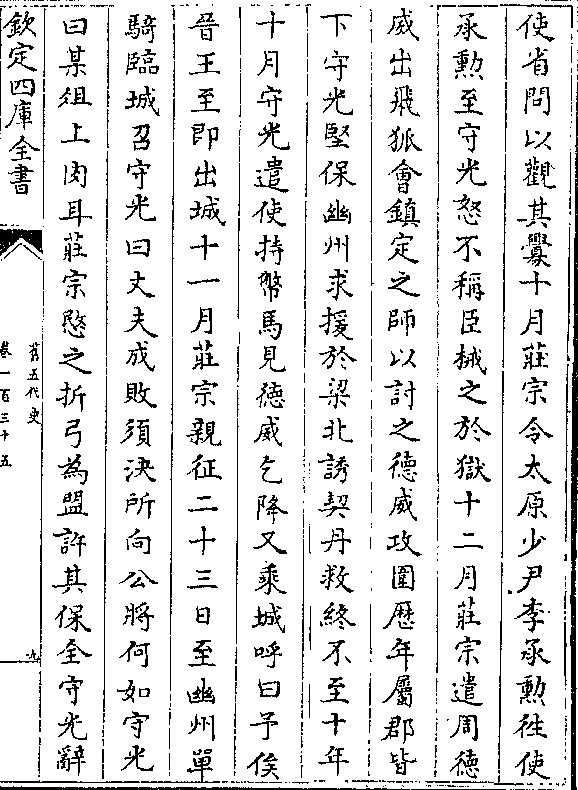 使省問以觀其釁十月莊宗令太原少尹李承勲徃使
承勲至守光怒不稱臣械之於獄十二月莊宗遣周德
威出飛狐會鎮定之師以討之德威攻圍歴年屬郡皆
下守光堅保幽州求援於梁北誘契丹救終不至十年
十月守光遣使持幣馬見德威乞降又乘城呼曰予俟
晉王至即出城十一月莊宗親征二十三日至幽州單
騎臨城召守光曰丈夫成敗須決所向公將何如守光
曰某俎上肉耳莊宗愍之折弓為盟許其保全守光辭
欽定四庫全書
舊五代史
卷一百三十五
九